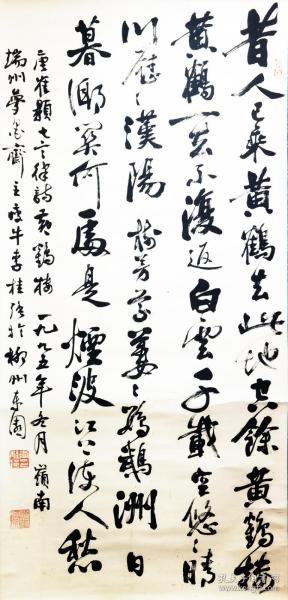 昔人已乘黃鶴去此地空餘黃鶴樓
黃鶴一去不復返白雲千載空悠〻晴
川歷〻漢陽樹芳草萋〻鸚鵡洲日
暮鄉關何處是煙波江上使人愁
唐崔顥七言律詩黃鶴樓 一九九五年冬月 嶺南
端州夢墨齋主 牛李桂強於柳州東園